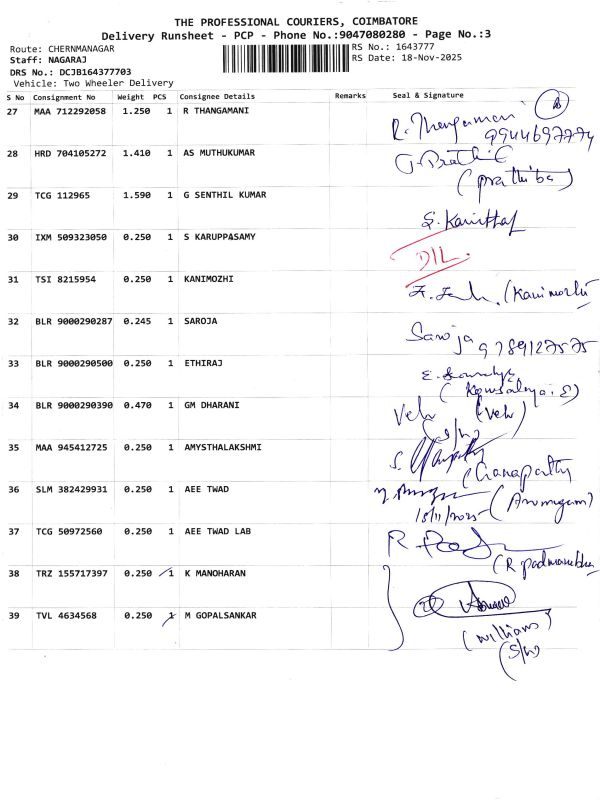 THE PROFESSIONAL COURIERS, COIMBATORE
Delivery Runsheet - PCP - Phone No.:9047080280 - Page No.:3
Route: CHERNMANAGAR
RS No.: 1643777
Staff: NAGARAJ
RS Date: 18-Nov-2025
DRS No.: DCJB164377703
Vehicle: Two Wheeler Delivery
S No Consignment No Weight PCS Consignee Details Remarks Seal & Signature
27 MAA 712292058 1.250 1 R THANGAMANI R. Thangamani
9944697774
28 HRD 704105272 1.410 1 AS MUTHUKUMAR
(prathiba)
29 TCG 112965 1.590 1 G SENTHIL KUMAR
30 IXM 509323050 0.250 1 S KARUPPASAMY DIL
31 TSI 8215954 0.250 1 KANIMOZHI (Kanimozhi
32 BLR 9000290287 0.245 1 SAROJA Saroja
9789127575
33 BLR 9000290500 0.250 1 ETHIRAJ
(Kowsalya.E)
34 BLR 9000290390 0.470 1 GM DHARANI Velu (Velu)
(S/w)
35 MAA 945412725 0.250 1 AMYSTHALAKSHMI
36 SLM 382429931 0.250 1 AEE TWAD (Arumugam)
18/11/2025
37 TCG 50972560 0.250 1 AEE TWAD LAB
38 TRZ 155717397 0.250 1 K MANOHARAN
39 TVL 4634568 0.250 1 M GOPALSANKAR
(williams)
(S/w)